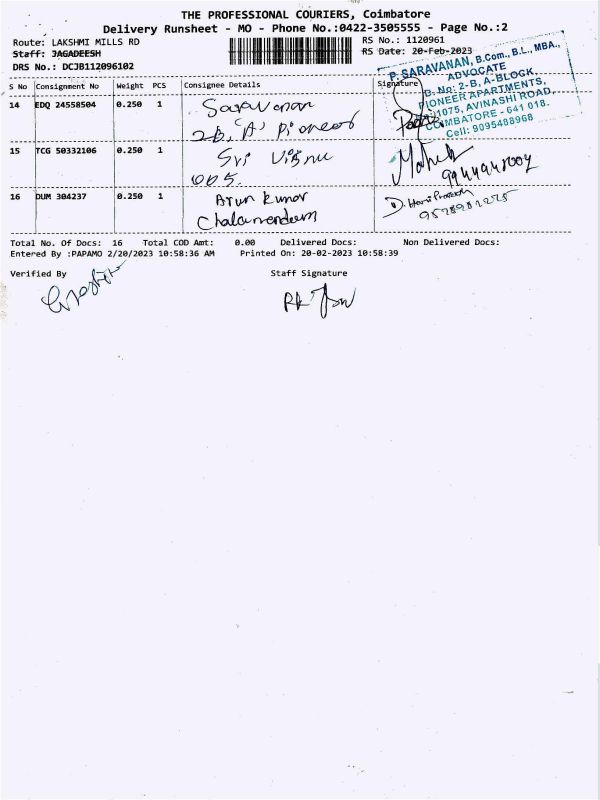 THE PROFESSIONAL COURIERS, Coimbatore
Delivery Runsheet - MO - Phone No.:0422-3505555 - Page No.:2
Route: LAKSHMI MILLS RD
RS No.: 1120961
Staff: JAGADEESH
RS Date: 20-Feb-2023
DRS No.: DCJB112096102
P. SARAVANAN, B.Com., B.L., MBA.,
ADVOCATE
D. No: 2-B, A-BLOCK,
PIONEER APARTMENTS,
1075, AVINASHI ROAD,
COIMBATORE - 641 018.
Cell: 9095488968
S No Consignment No Weight PCS Consignee Details Signature
14 EDQ 24558504 0.250 1 Saravanan
2B, 'A' Pioneer
15 TCG 50332106 0.250 1 Sri Vishnu
005.
16 DUM 304237 0.250 1 Arun kumar
D. Hari Prasath
Total No. Of Docs: 16 Total COD Amt: 0.00 Delivered Docs: Non Delivered Docs:
Entered By :PAPAMO 2/20/2023 10:58:36 AM Printed On: 20-02-2023 10:58:39
Verified By Staff Signature